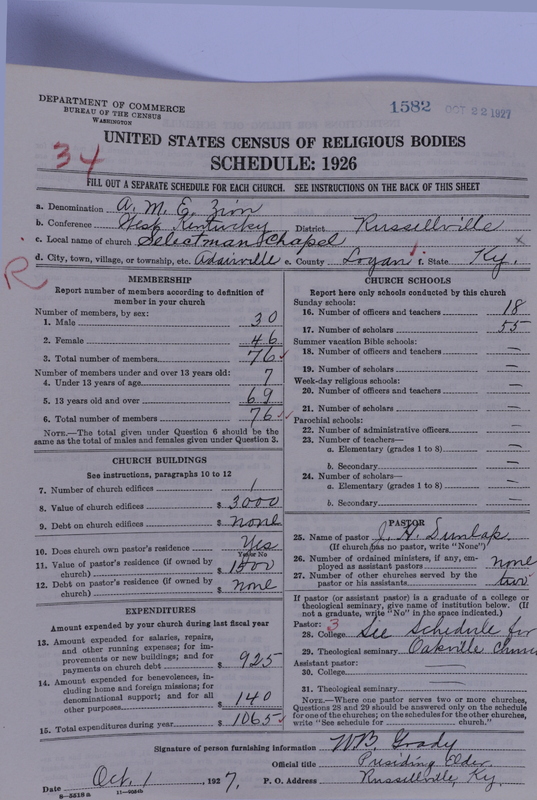 DEPARTMENT OF COMMERCE
BUREAU OF THE CENSUS
WASHINGTON
1582 OCT 22 1927
UNITED STATES CENSUS OF RELIGIOUS BODIES
34
SCHEDULE: 1926
FILL OUT A SEPARATE SCHEDULE FOR EACH CHURCH. SEE INSTRUCTIONS ON THE BACK OF THIS SHEET
a. Denomination A. M. E. Zion
b. Conference West Kentucky District Russellville
c. Local name of church Selectman Chapel x
d. City, town, village, or township, etc. Adairville e. County Logan f. State Ky.
R
MEMBERSHIP
Report number of members according to definition of
member in your church
Number of members, by sex:
1. Male 30
2. Female 46
3. Total number of members 76
Number of members under and over 13 years old:
4. Under 13 years of age 7
5. 13 years old and over 69
6. Total number of members 76
NOTE.—The total given under Question 6 should be the
same as the total of males and females given under Question 3.
CHURCH BUILDINGS
See instructions, paragraphs 10 to 12
7. Number of church edifices 1
8. Value of church edifices $ 3000
9. Debt on church edifices $ none
10. Does church own pastor's residence Yes
Yes or No
11. Value of pastor's residence (if owned by
church) $ 1500
12. Debt on pastor's residence (if owned by
church) $ none
EXPENDITURES
Amount expended by your church during last fiscal year
13. Amount expended for salaries, repairs,
and other running expenses; for im-
provements or new buildings; and for
payments on church debt $ 925
14. Amount expended for benevolences, in-
cluding home and foreign missions; for
denominational support; and for all
other purposes $ 140
15. Total expenditures during year $ 1065
CHURCH SCHOOLS
Report here only schools conducted by this church
Sunday schools:
16. Number of officers and teachers 18
17. Number of scholars 55
Summer vacation Bible schools:
18. Number of officers and teachers —
19. Number of scholars —
Week-day religious schools:
20. Number of officers and teachers —
21. Number of scholars —
Parochial schools:
22. Number of administrative officers —
23. Number of teachers—
a. Elementary (grades 1 to 8) —
b. Secondary —
24. Number of scholars—
a. Elementary (grades 1 to 8) —
b. Secondary —
PASTOR
25. Name of pastor J. H. Dunlap
(If church has no pastor, write "None")
26. Number of ordained ministers, if any, em-
ployed as assistant pastors none
27. Number of other churches served by the
pastor or his assistants two
If pastor (or assistant pastor) is a graduate of a college or
theological seminary, give name of institution below. (If
not a graduate, write "No" in the space indicated.)
Pastor: 3
28. College See schedule for
29. Theological seminary Oakville Church
Assistant pastor:
30. College —
31. Theological seminary —
NOTE.—Where one pastor serves two or more churches,
Questions 28 and 29 should be answered only on the schedule
for one of the churches; on the schedules for the other churches,
write "See schedule for church."
Signature of person furnishing information W B Grady
Official title Presiding Elder
Date Oct. 1, 1927. P. O. Address Russellville, Ky.